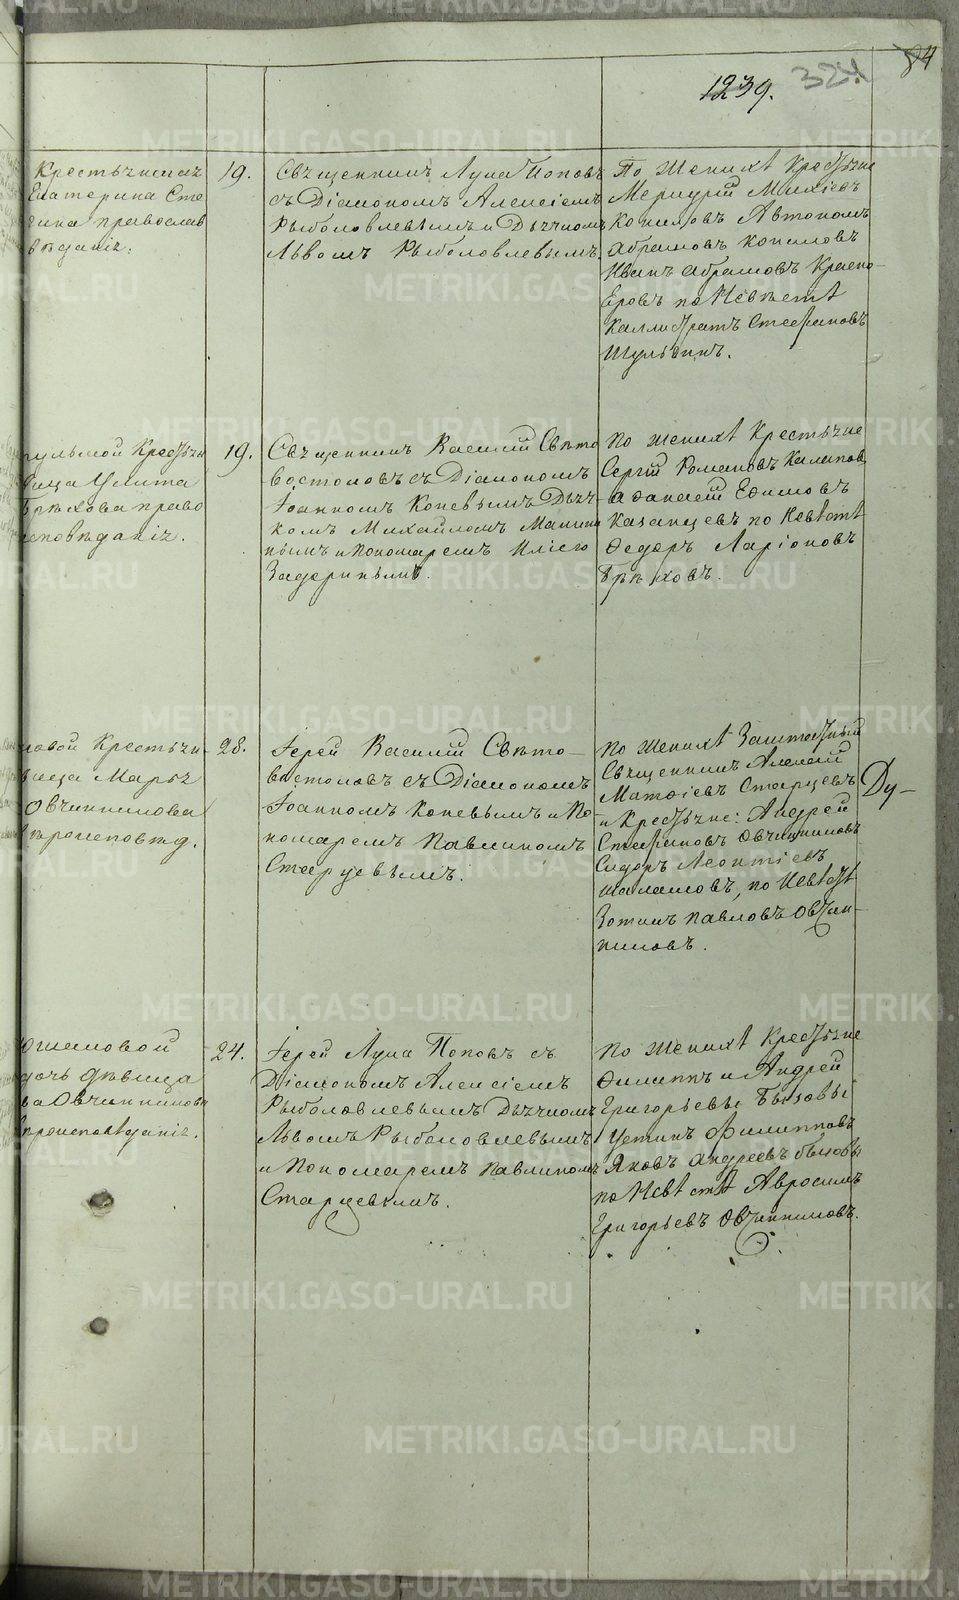 1239. 324. 84
Крестьянская
Екатерина Сте
гина православ
вѣданія.
19.
Священникъ Лука Поповъ
съ Діакономъ Алексіемъ
Рыболовлевымъ и Дьячкомъ
Львомъ Рыболовлевымъ.
По Женихѣ Крестьяне
Меркурій Михіевъ
Копыловъ Автономъ
Абрамовъ Копыловъ
Иванъ Абрамовъ Красно-
Еровъ по Невѣстѣ
Каллистратъ Стефановъ
Шульгинъ.
пульмой Крестьян
вица Улита
Брюхова право
исповѣданія.
19.
Священникъ Василій Свѣто
востоковъ съ Діакономъ
Іоанномъ Коневымъ Дьяч-
комъ Михайломъ
нымъ и Пономаремъ Иліею
Задоринымъ.
По Женихѣ Крестьяне
Сергій Романовъ
Афанасій Ефимовъ
Казанцевъ по Невѣстѣ
Федоръ Ларіоновъ
Брюховъ.
ковой Крестьян-
вица Марья
Овчинникова
вѣроисповѣд.
28.
Іерей Василій Свѣто-
востоковъ съ Діакономъ
Іоанномъ Коневымъ и По
номаремъ Павлиномъ
Старцевымъ.
По Женихѣ Заштатный
Священникъ Алексій
Матфіевъ Старцевъ
и Крестьяне: Андрей
Стефановъ Овчинниковъ
Сидоръ Леонтіевъ
Шаламовъ, по Невѣстѣ
Зотикъ Павловъ Овчин-
никовъ.
Ду-
Южаковой
дочь дѣвица
ва Овчинникова
вѣроисповѣданія.
24.
Іерей Лука Поповъ съ
Діакономъ Алексіемъ
Рыболовлевымъ Дьячкомъ
Львомъ Рыболовлевымъ
и Пономаремъ Павлиномъ
Старцевымъ.
По Женихѣ Крестьяне
Филиппъ и Андрей
Григорьевы Бызовы
Устинъ Филипповъ
Яковъ Андреевъ Бызовы
по Невѣстѣ Авросимъ
Григорьевъ Овчинниковъ.
METRIKI.GASO-URAL.RU